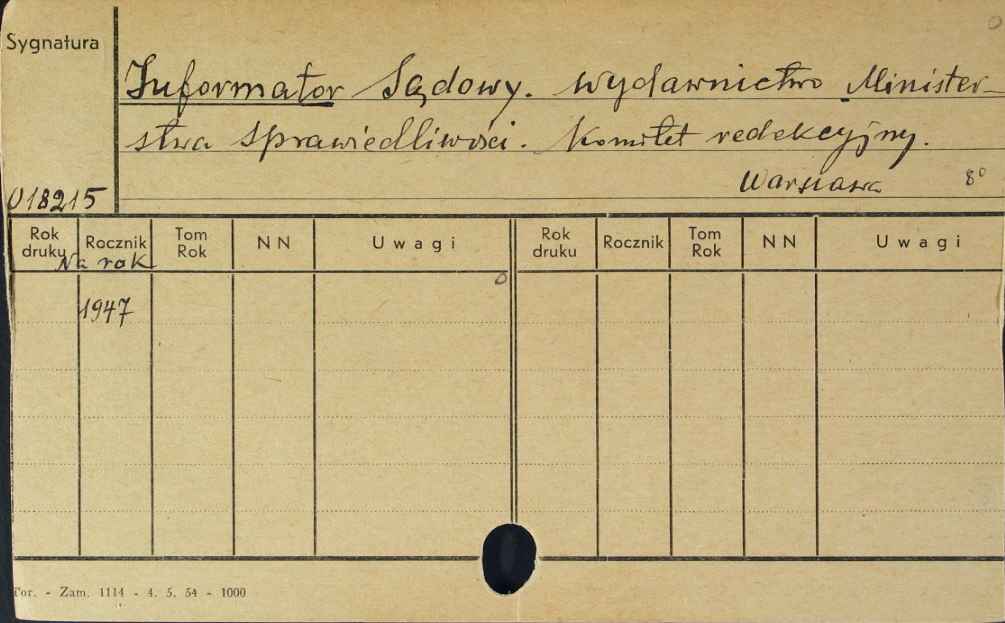 Sygnatura
Informator Sądowy. Wydawnictwo Minister-
stwa Sprawiedliwości. Komitet redakcyjny.
Warszawa 8°
018215
Rok druku Rocznik Tom Rok NN Uwagi Rok druku Rocznik Tom Rok NN Uwagi
Na rok
1947
Tor. - Zam. 1114 - 4. 5. 54 - 1000